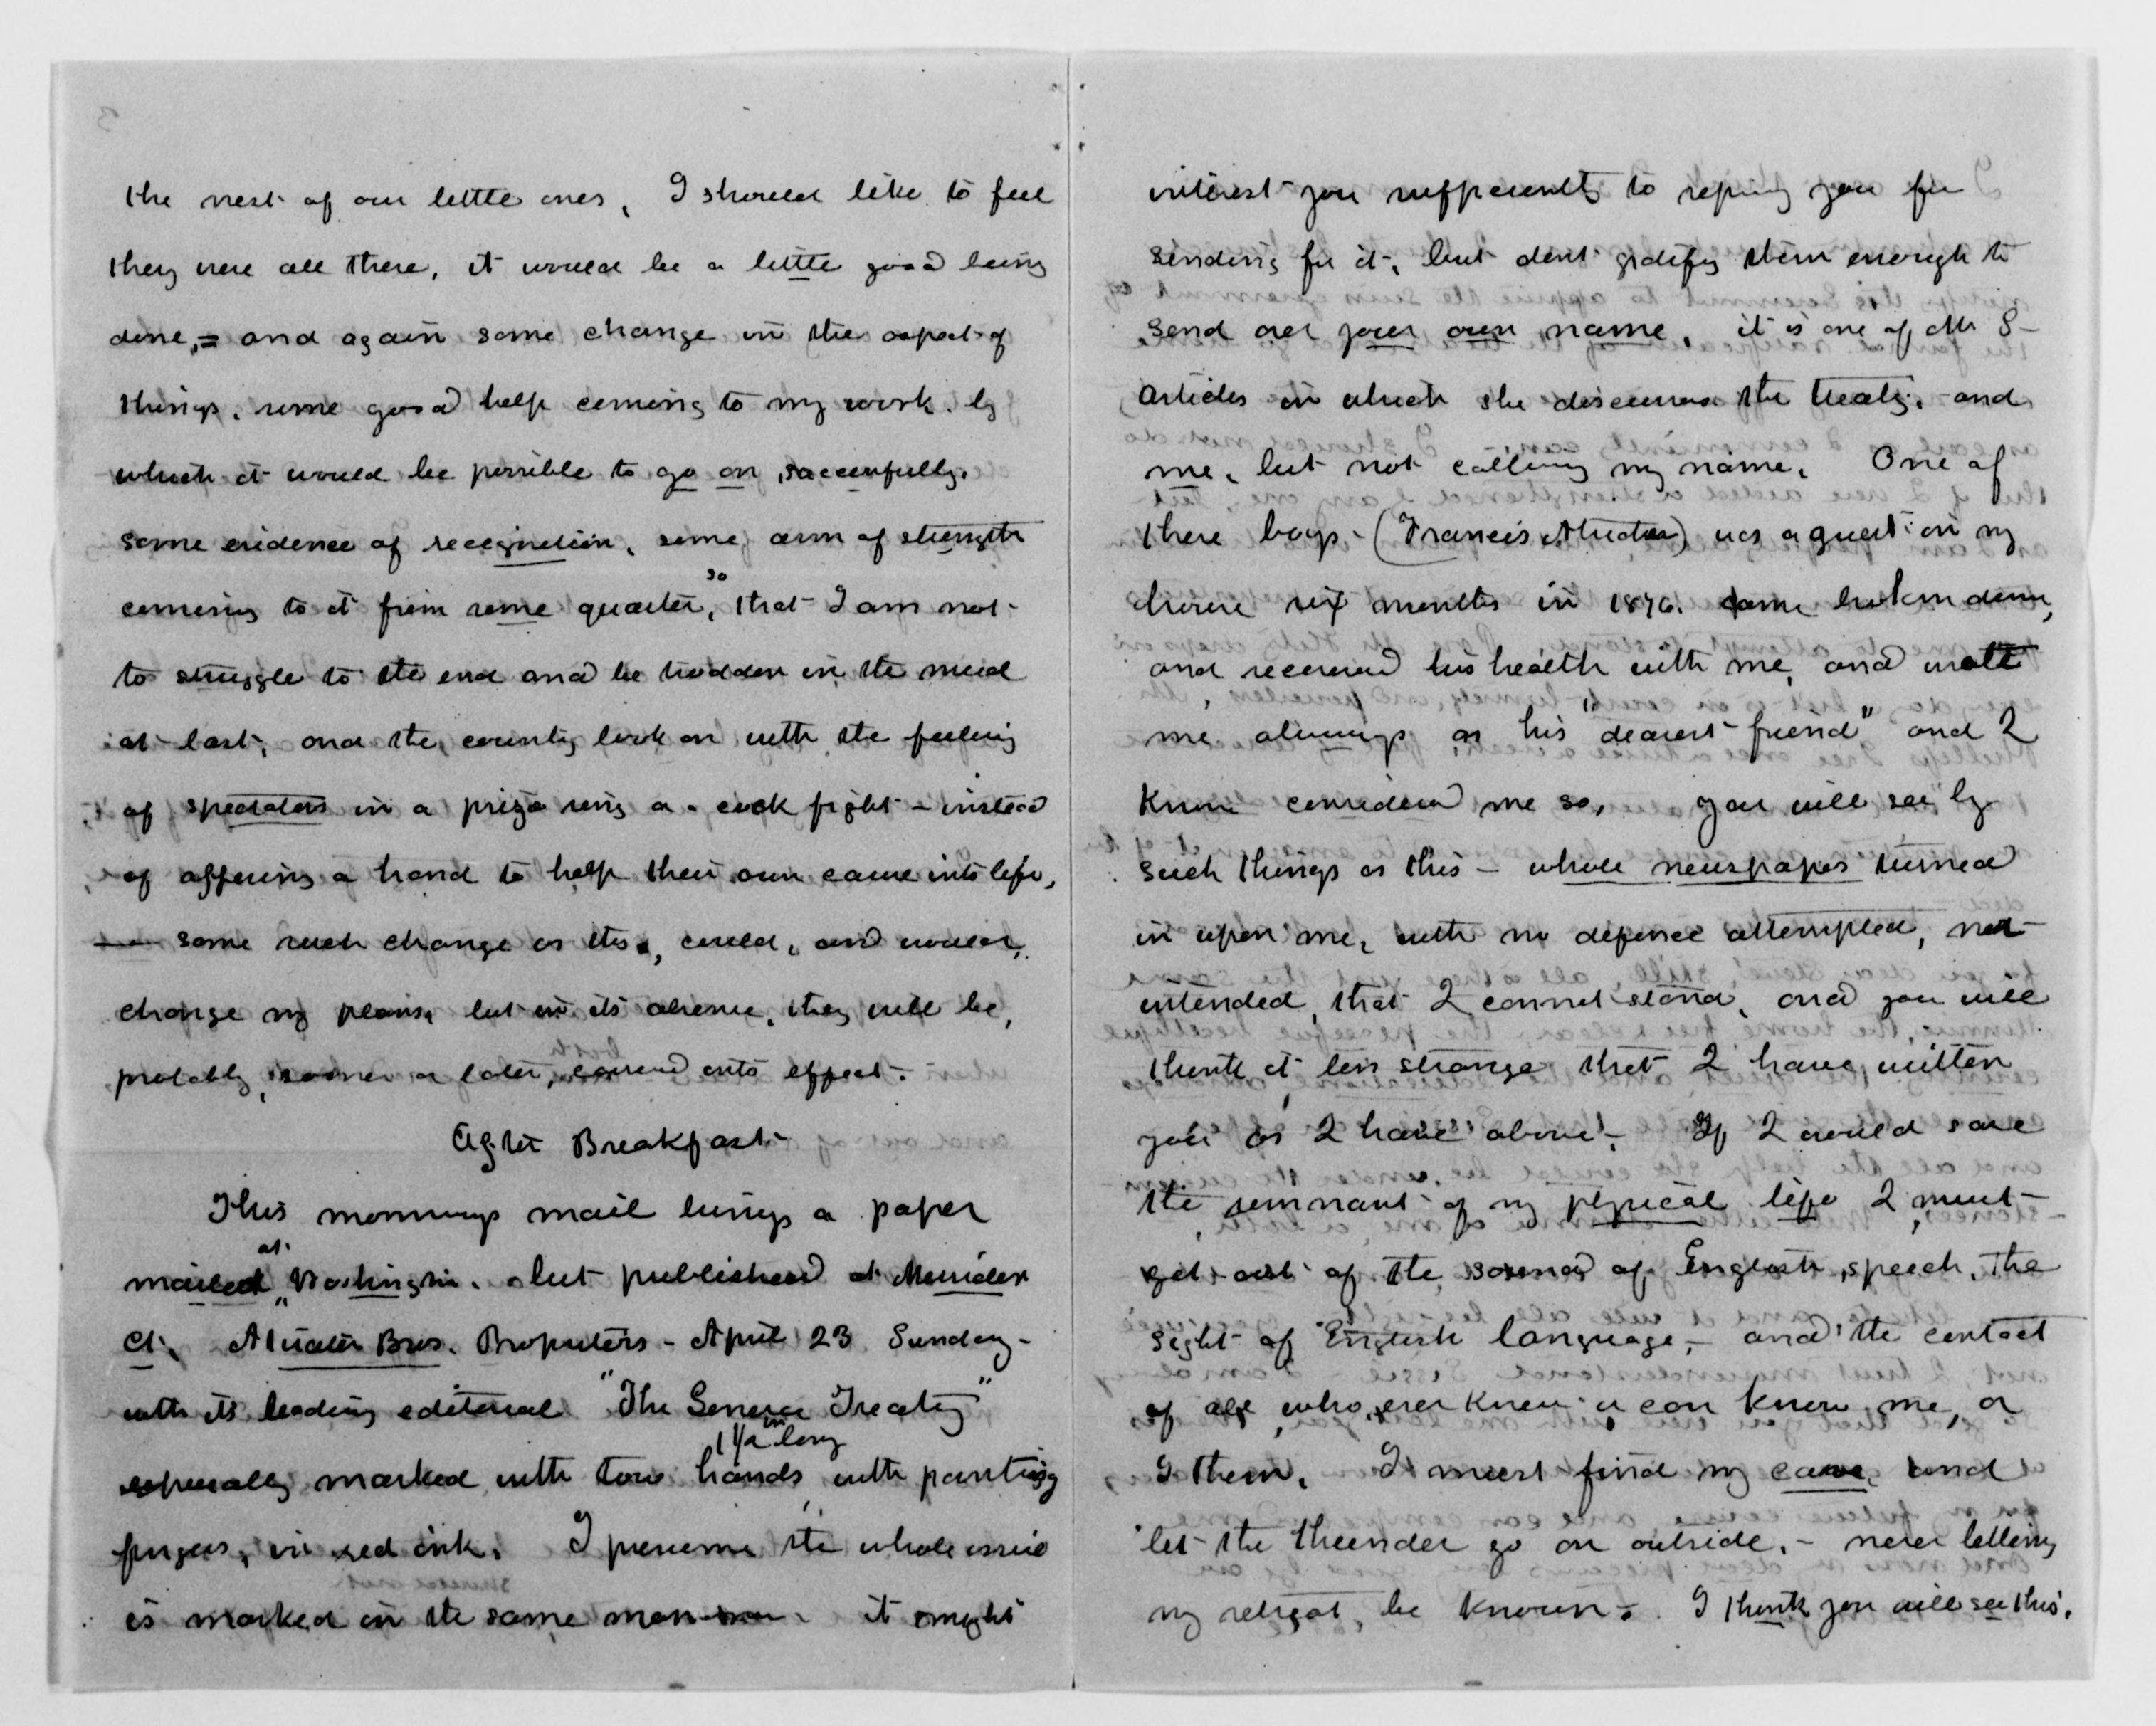 the nest of our little ones, I should like to feel
they were all there, it would be a little good being
done, = and again some change in the aspect of
things, some good help coming to my work. by
which it would be possible to go on, successfully.
some evidence of recognition, some arm of strength
coming to it from some quarter, so that I am not
to struggle to the end and be trodden in the mud
at last, and the country look on with the feeling
of spectators in a prize ring or cock fight – instead
of offering a hand to help their own cause into life,
— some such change as this, could, and would,
change my plans, but in its absence, they will be,
probably, sooner or later, both carried into effect.
After Breakfast
This mornings mail brings a paper
mailed at Washington. but published at Meriden
Ct. Atwater Bros. Proprietors – April 23 Sunday –
with its leading editorial "The Geneva Treaty"
especially marked with two hands 1 1/2 in long with pointing
fingers, in red ink. I presume the whole issue
is marked in the same manner. it might
interest you sufficiently to repay you for
sending for it, but dont gratify them enough to
send over your own name, it is one of Mr S–
articles in which she discusses the treaty, and
me, but not calling my name. One of
these boys – (Francis Atwater) was a guest in my
house six months in 1876. came broken down,
and recovered his health with me, and wrote
me always as his "dearest friend" and I
know considered me so, you will see by
such things as this – whole newspapers turned
in upon me, with no defence attempted, not
intended, that I cannot stand, and you will
think it less strange that I have written
you as I have above. If I would save
the remnant of my physical life I must
get out of the sound of English speech, the
sight of English language, – and the contact
of all who ever knew or can know me, or
I them. I must find my cave, and
let the thunder go on outside, – never letting
my retreat be known. I think you will see this.